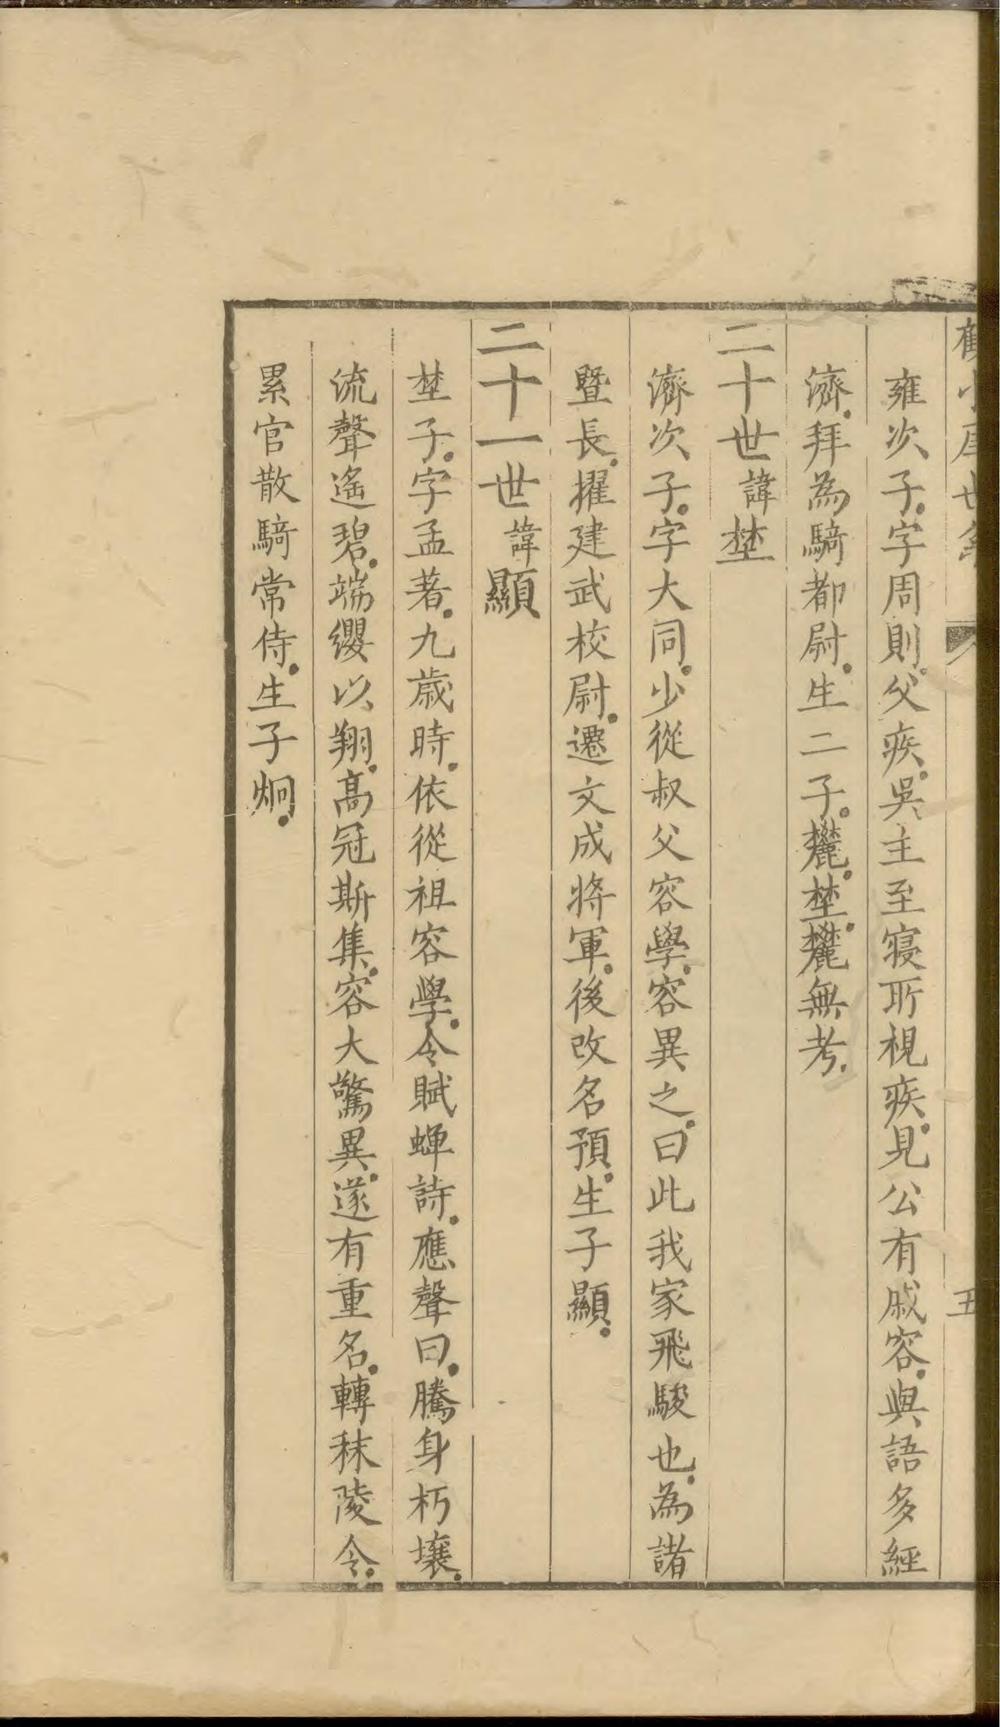 雍次子字周則父疾吳主至寢所視疾見公有戚容與語多經
濟拜為騎都尉生二子麊埜麊無考
二十世諱埜
濟次子字大同少從叔父容學容異之曰此我家飛駿也為諸
暨長擢建武校尉遷文成將軍後改名預生子顯
二十一世諱顯
埜子字孟著九歲時依從祖容學令賦蟬詩應聲曰騰身朽壤
流聲遙碧端纓以翔高冠斯集容大驚異遂有重名轉秣陵令
累官散騎常侍生子炯